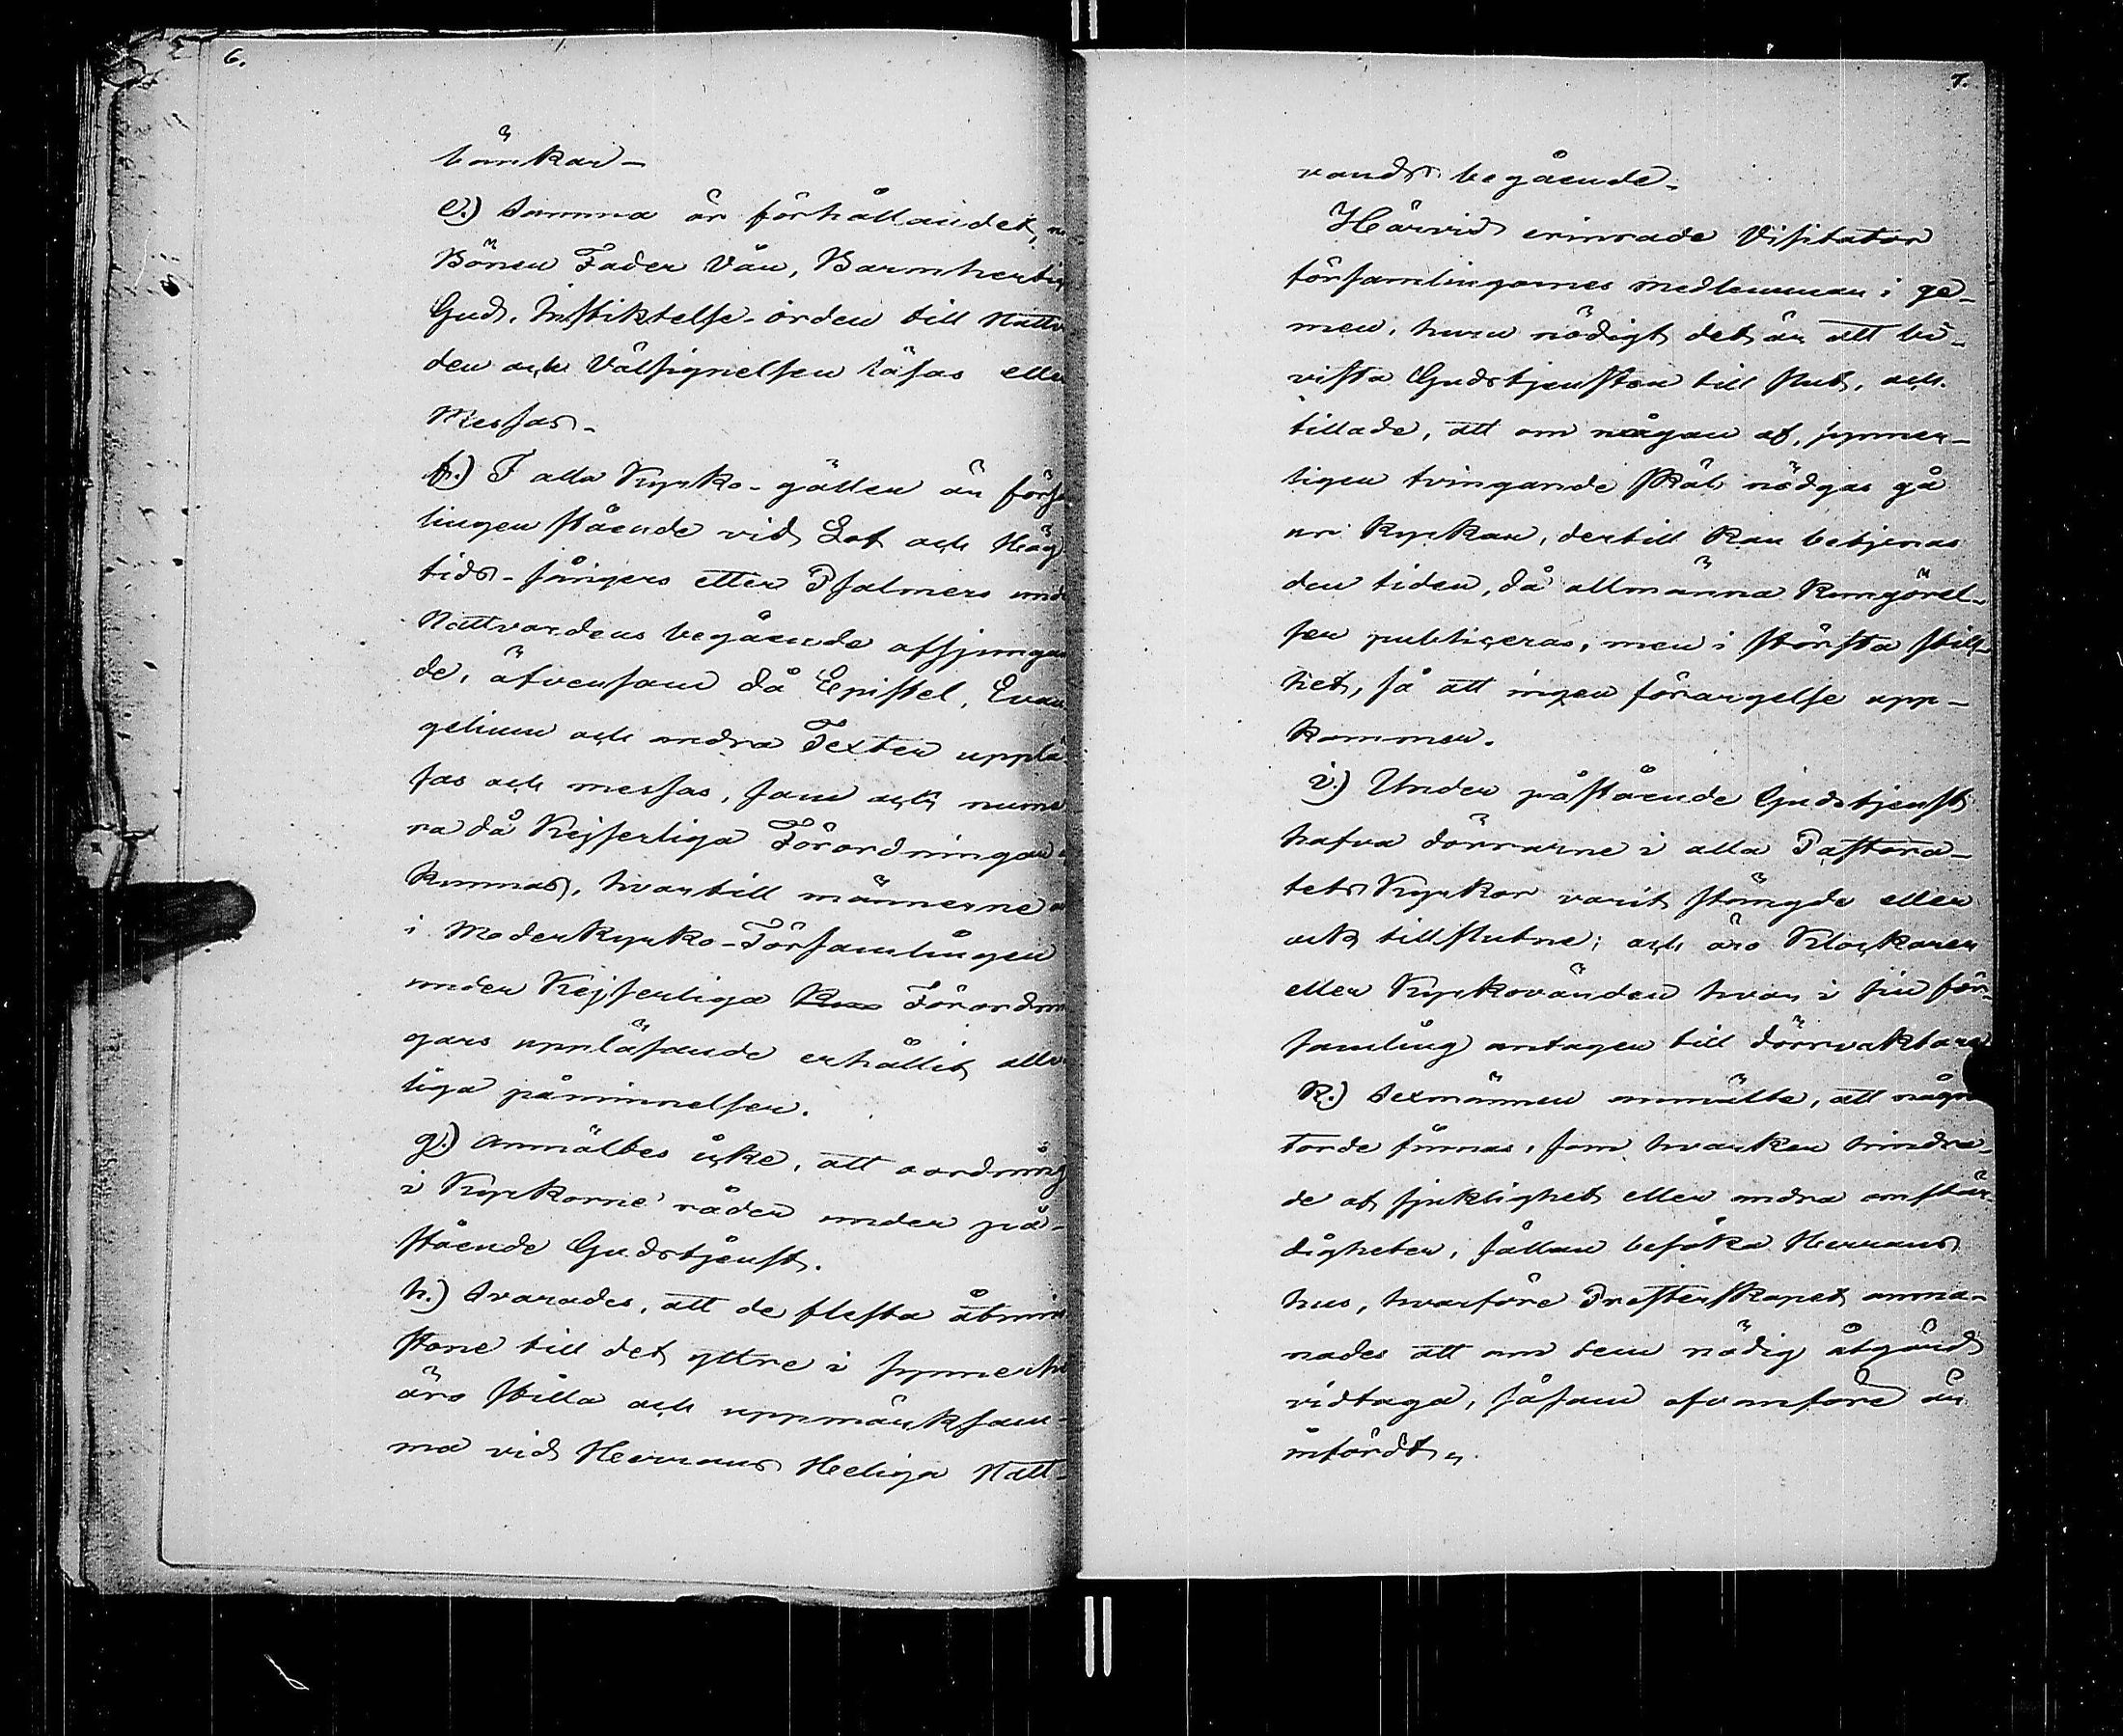 6.
bänkar-
e.) Samma är förhållandet,
Bönen Fader Vår, Barmhertig
Gud, Instiktelse-orden till Nattv
den och Välsignelsen läsas elle
Messas-
f.) I alla Kyrko-gällen är försa
lingen stående vid Lof och Hög
tids-sångers eller Psalmers unde
Nattvardens begående afsjungan
de, äfvensom då Epistel, Evan
gelium och andra Texter upplä-
sas och messas, som ock nume
ra då Kejserliga Förordningar
kunnas, hvartill männerne
i Moderkyrko-Församlingen
under Kejserliga Förordnin
gars uppläsande erhållit allv
liga påminnelser.
g.) Anmältes icke, att oordning
i Kyrkorne råder under på-
stående Gudstjenst.
h.) Svarades, att de flesta åtmin
stone till det yttre i synnerhe
äro stilla och uppmärksam-
ma vid Herrans Heliga Natt-
7.
vards begående.
Härvid erinrade Visitator
församlingarnes medlemmar i ge-
men, huru nödigt det är att bi-
vista Gudstjensten till slut, och
tillade, att om någon af, synner-
ligen tvingande skäl nödgas gå
ur Kyrkan, dertill kan betjenas
den tiden, då allmänna Kungörel-
ser publiceras, men i största still-
het, så att ingen förargelse upp-
kommer.
i.) Under påstående Gudstjenst
hafva dörrarne i alla Pastora-
tets Kyrkor varit stängde eller
ock tillslutne; och äro Klockaren
eller Kyrkovärden hvar i sin för-
samling antagen till dörrvaktare
k.) Sexmännen anmälte, att någre
torde finnas, som hvarken hindra-
de af sjuklighet eller andra omstän-
digheter, sällan besöka Herrans
hus, hvarföre Presterskapet anma-
nades att om dem nödig åtgärd
vidtaga, såsom ofvanföre är
infördt.